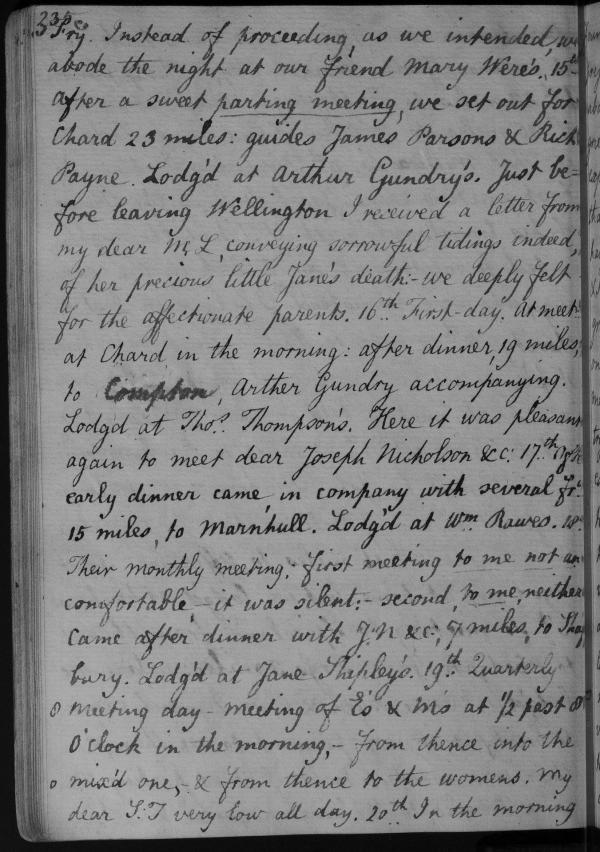 235
Fry. Instead of proceeding, as we intended, we
abode the night at our friend Mary Were's. 15th
After a sweet parting meeting, we set out for
Chard 23 miles: guides James Parsons & Rich
Payne. Lodg'd at Arthur Gundry's. Just be=
fore leaving Wellington I received a letter from
my dear M, L, conveying sorrowful tidings indeed,
of her precious little Jane's death:- we deeply felt
for the affectionate parents. 16th First-day. At meet
at Chard in the morning: after dinner, 19 miles,
to Compton, Arther Gundry accompanying.
Lodg'd at Thos. Thompson's. Here it was pleasant
again to meet dear Joseph Nicholson &c: 17th
early dinner came, in company with several fr
15 miles, to Marnhull. Lodg'd at Wm Rawes. 18
Their monthly meeting: first meeting to me not un
comfortable - it was silent:- second, to me, neither
Came after dinner with J. N &c, 7 miles, to Shaf
bury. Lodg'd at Jane Shipley's. 19th Quarterly
8 meeting day - meeting of E's & M's at 1/2 past 8
O'clock in the morning, - from thence into the
o mix'd one, - & from thence to the womens. My
dear S. T very low all day. 20th In the morning